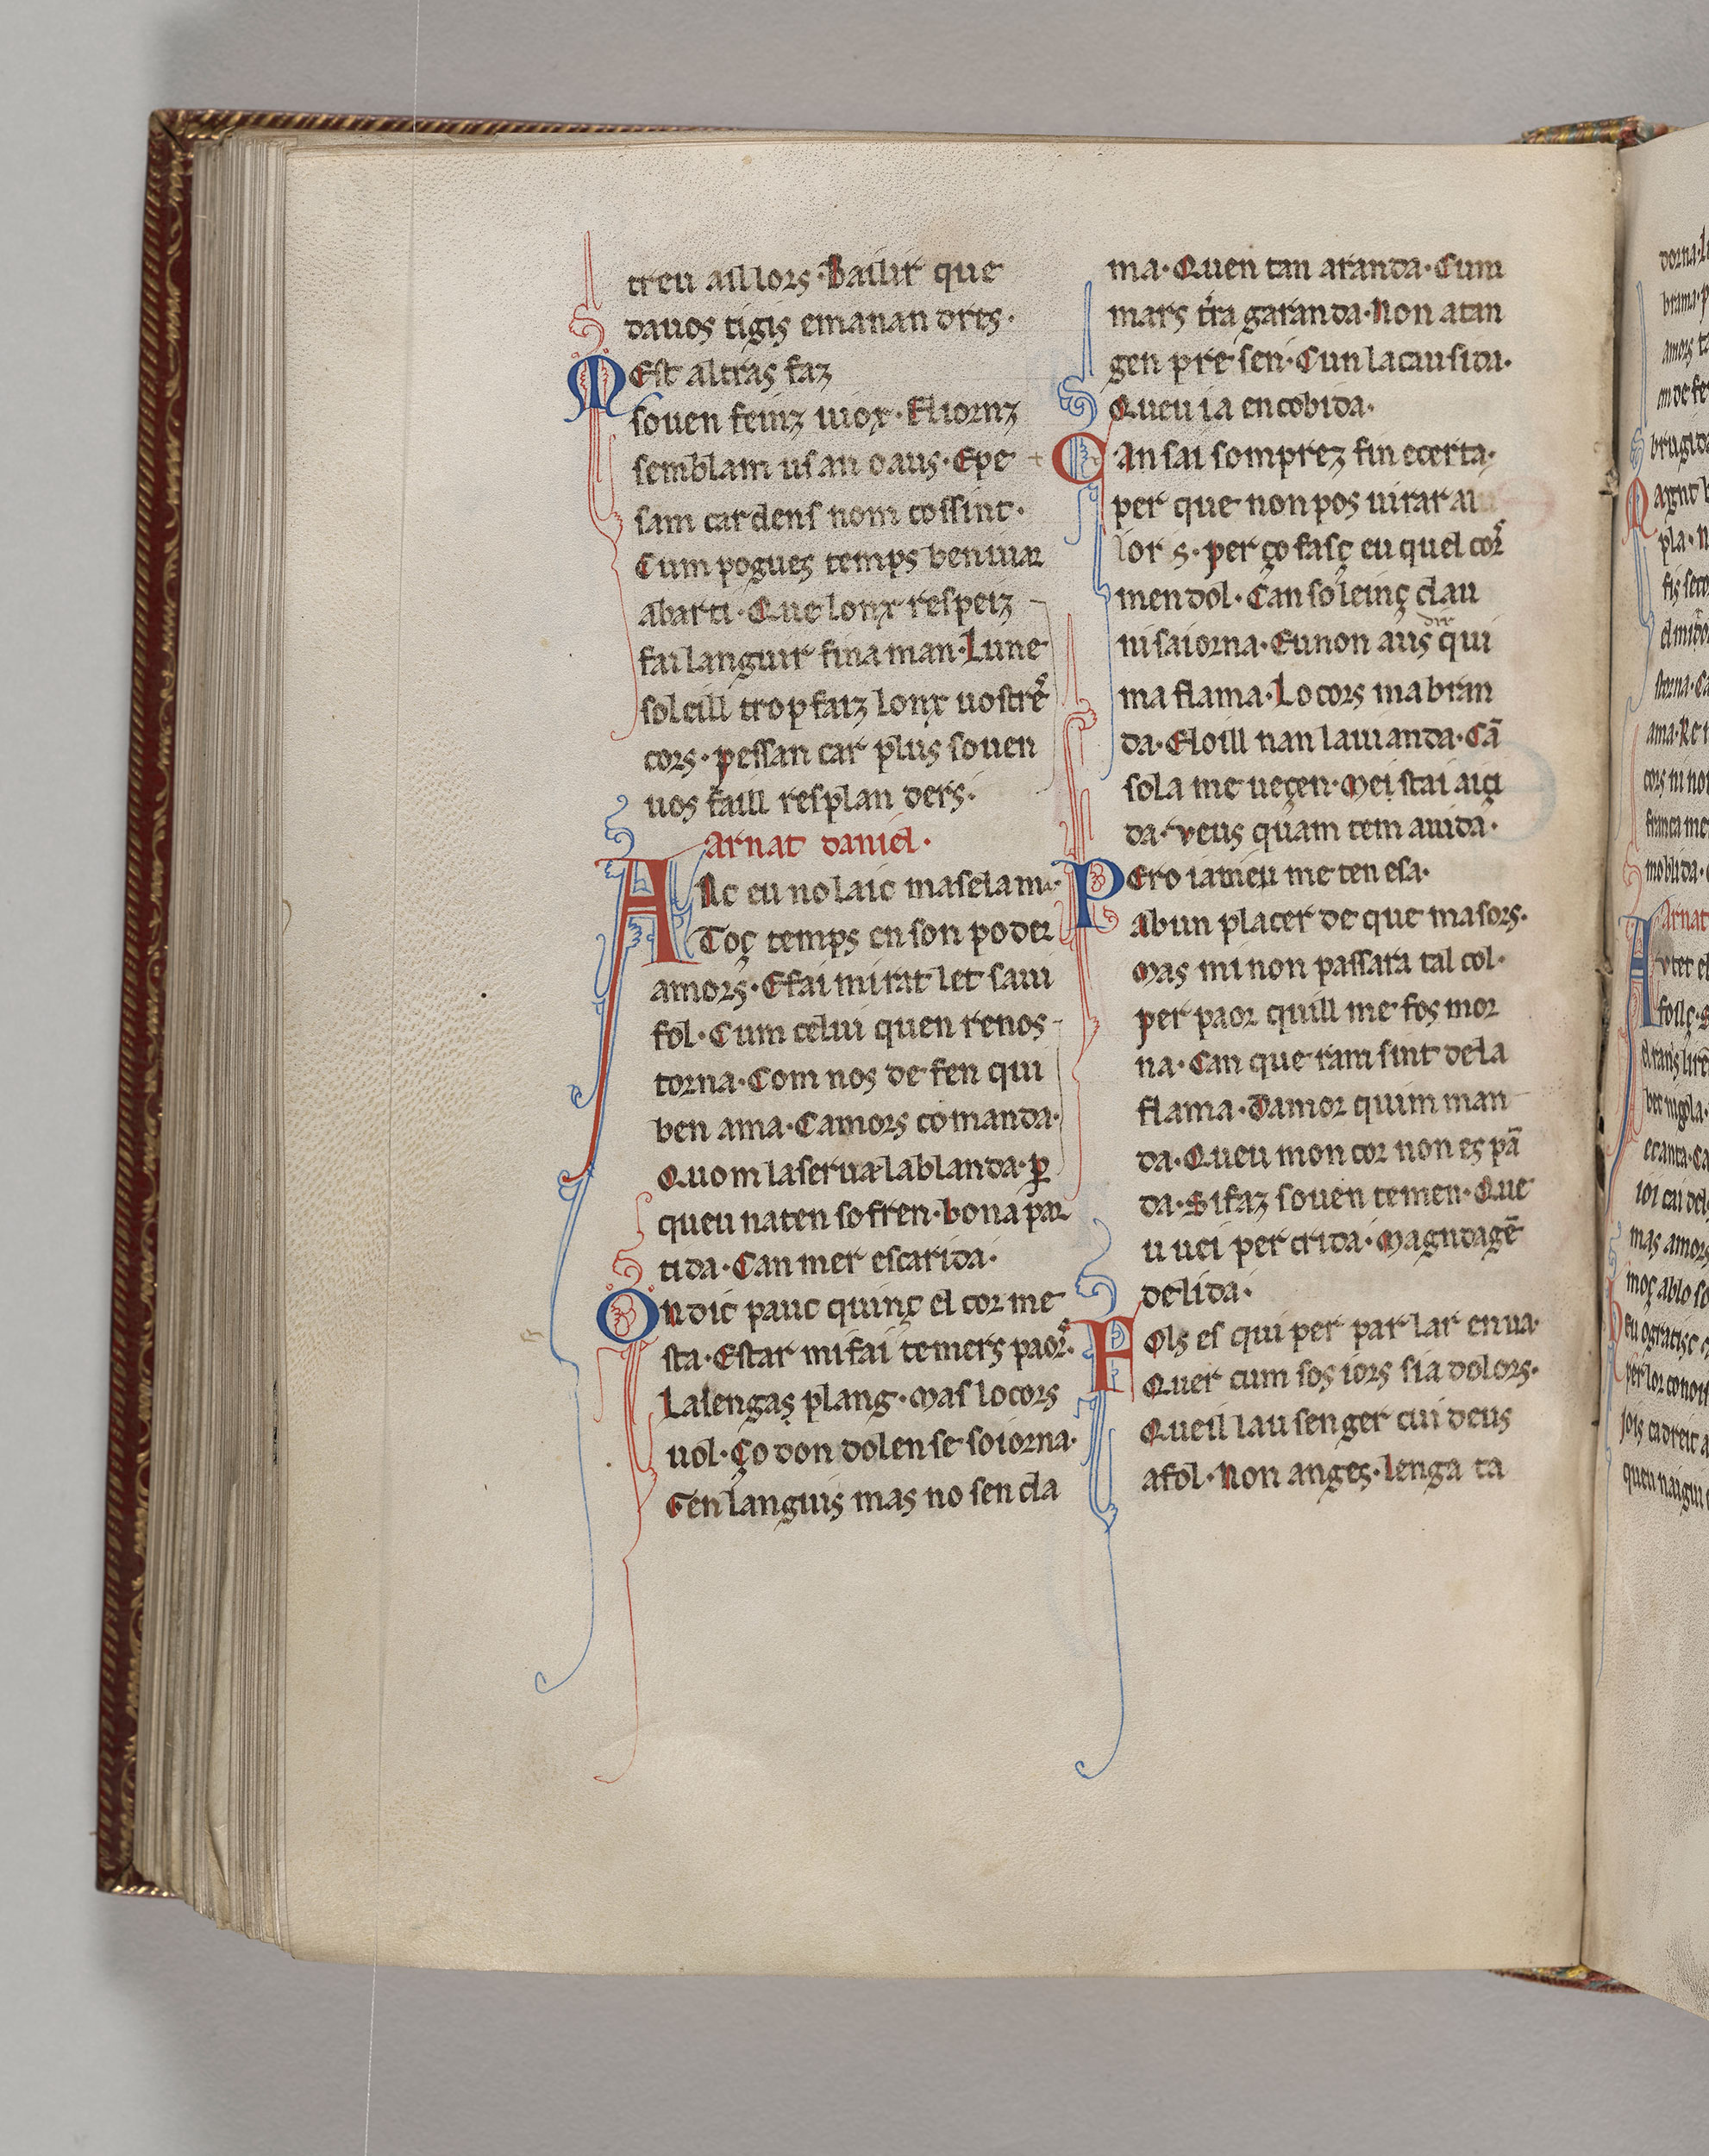 treu aillors· Bailir que
dauos tigis emanan dres·
MEst altras faz
souen feinz iuox· Eliornz
semblam us an oaus· Epe
sam cardens nom cossint·
Cum pogues temps ben iuar
abarti· Que lonx respeiz
fai languir fin aman· Lune
soleill trop faiz lonx uostrē
cors· pessan car plus souen
uos faill resplanders·
Arnat daniel·
ANc eu nolaic mas elam·
Toç temps en son poder
amors· E fai mirat let saui
fol· Cum celui quen re nos
torna· Com nos defen qui
ben ama· Camors comanda·
Quom laserua lablanda· p̱
queu naten sofren· bona par
tida· Can mer escarida·
Ondic pauc quinç el cor me
sta· Estar mi fai temers paors·
Lalengas plang· mas locors
uol· Ço don dolen se soiorna·
Cen languis mas no sen cla
ma· Quen tan aranda· Cum
mars tra garanda· Non atan
gen presen· Cun lacausida·
Queu ia encobida·
CAn sai somprez fin ecerta·
per que non pos uirar ai
lors· per ço fasç eu quel cors
men dol· Can soleinç clau
ni saiorna· Eu non aus dir qui
ma flama· Lo cors mabran
da· Eloill nan lauianda· Cā
sola meueçen· mei stai aiçi
da· veus quam tem auida·
PEro iamieu me ten esa·
Abun placer de que masors·
mas mi non passara tal col·
per paor quill me fos mor
na· Can queram sint dela
flama· Damor quim man
da· Queu mon cor non espā
da· Si faz souen temen· Que
u uei per crida· magndagē
delida·
FOls es qui per parlar enua·
Quer cum sos iors sia dolors·
Queil lausenger cui deus
afol· Non anges· lenga ta